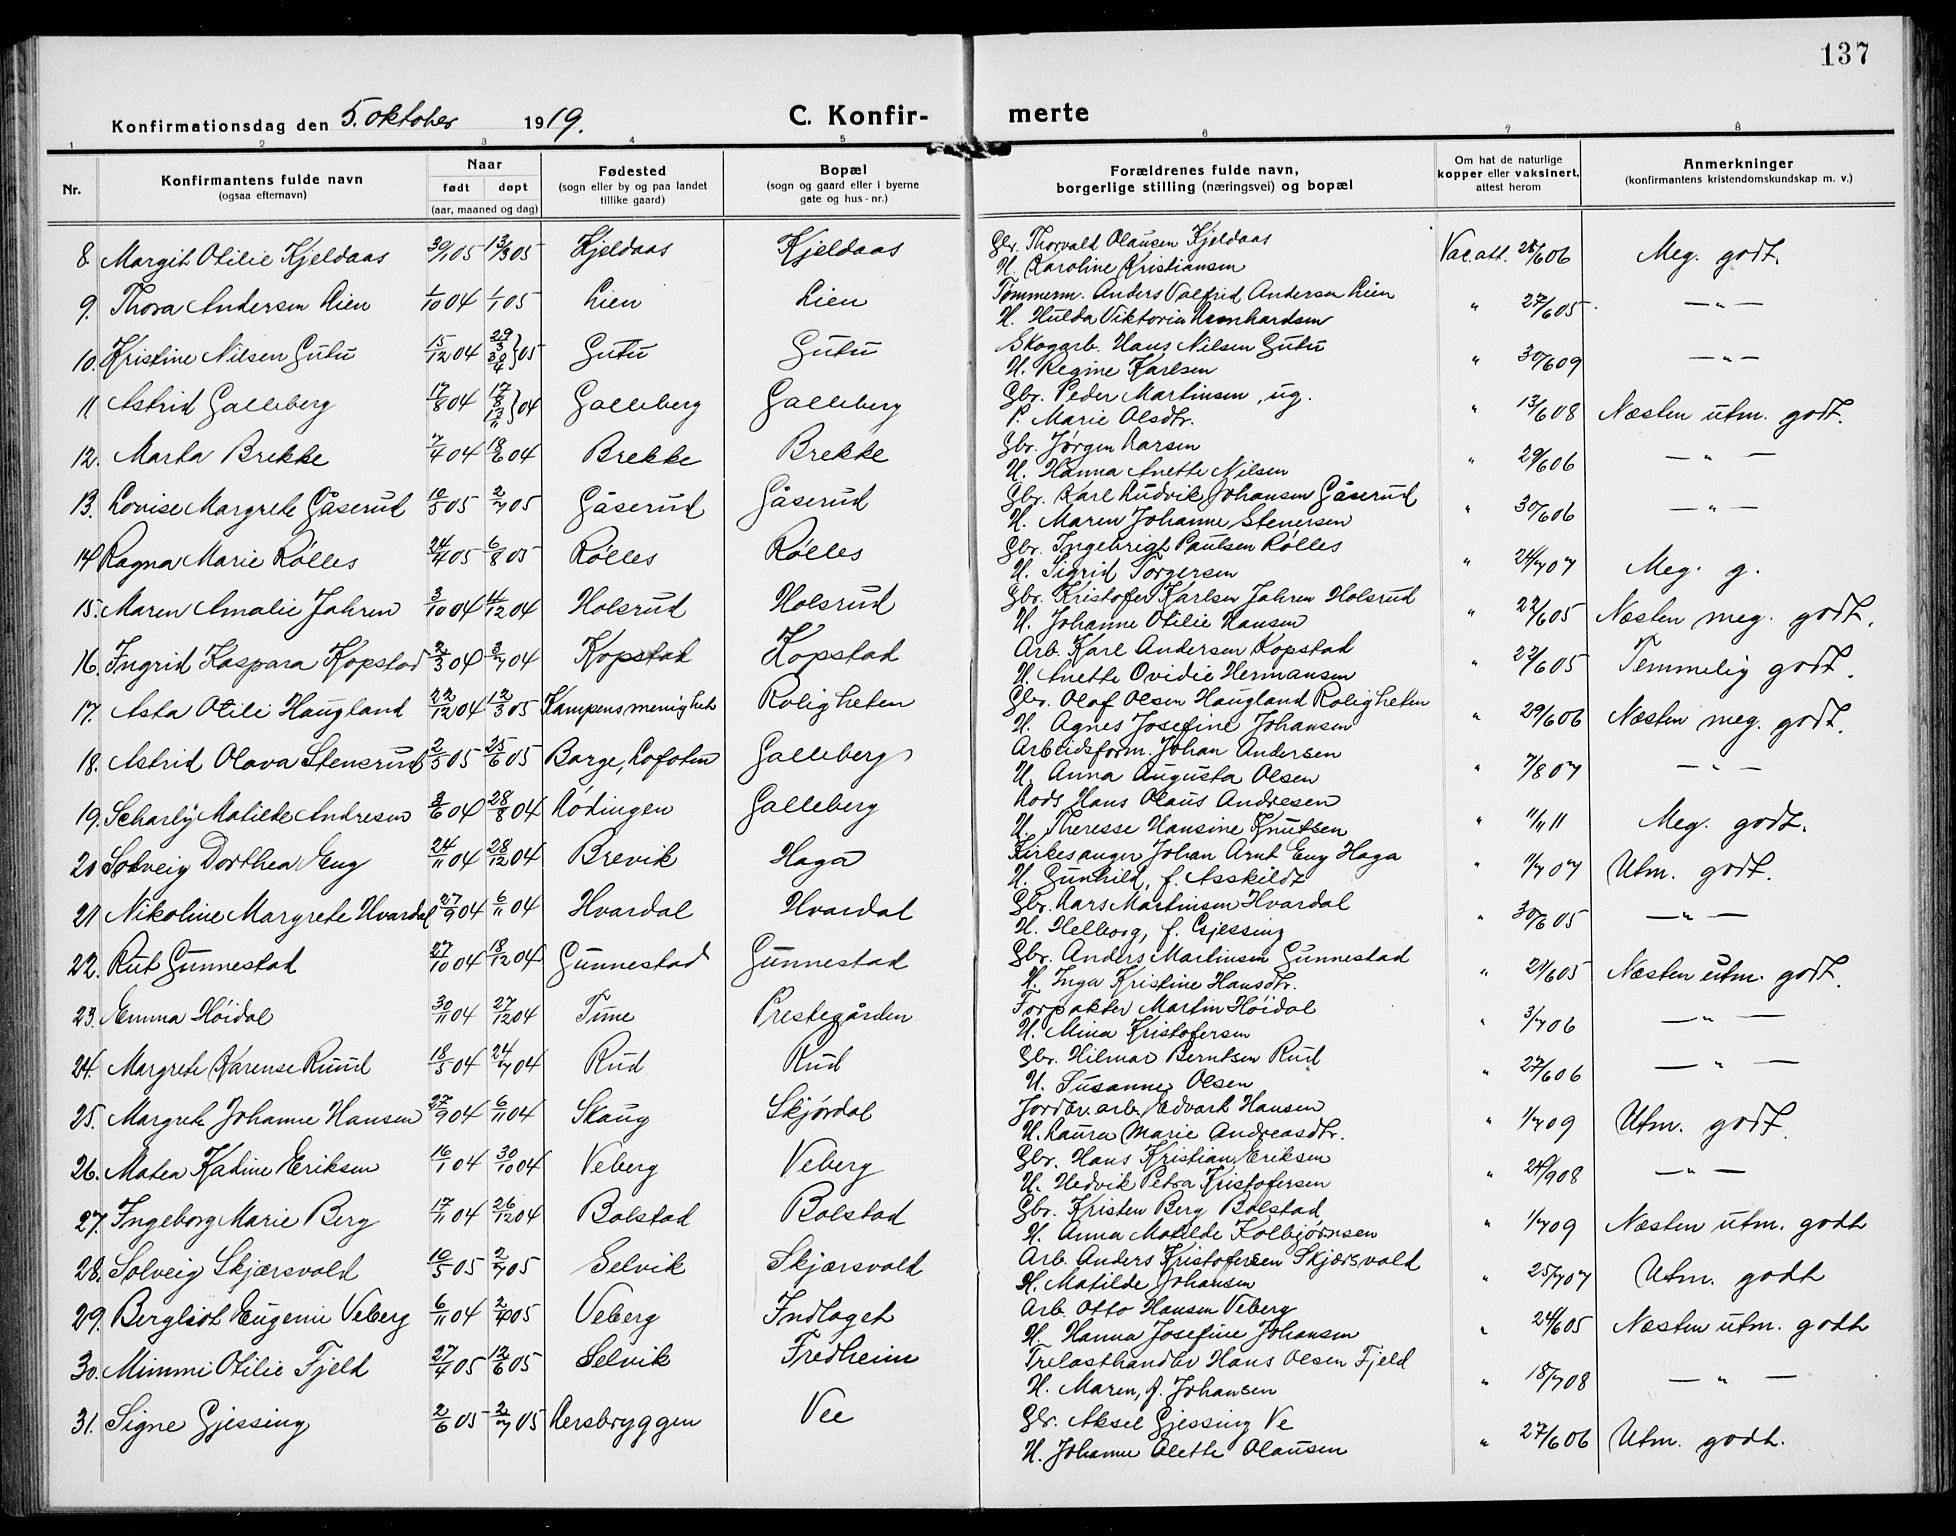 137
Konfirmationsdag den 5. oktober 1919. C. Konfir- merte
1 2 3 4 5 6 7 8
Nr. Konfirmantens fulde navn (ogsaa efternavn) Naar født døpt (aar, maaned og dag) Fødested (sogn eller by og paa landet tillike gaard) Bopæl (sogn og gaard eller i byerne gate og hus-nr.) Forældrenes fulde navn, borgerlige stilling (næringsvei) og bopæl Om hat de naturlige kopper eller vaksinert, attest herom Anmerkninger (konfirmantens kristendomskundskap m. v.)
8 Margit Otilie Kjeldaas 30/1 05 13/3 05 Kjeldaas Kjeldaas Gbr. Thorvald Olausen Kjeldaas Vac. att. 28/6 06 Meg. godt.
H. Karoline Kristiansen
9. Thora Andersen Lien 1/10 04 1/1 05 Lien Lien Tømmerm. Anders Valfrid Andersen Lien " 27/6 05 — " —
H. Hulda Viktoria Leonhardsen
10. Kristine Nilsen Gutu 15/12 04 29/3 30/4 } 05 Gutu Gutu Skogarb. Hans Nilsen Gutu " 30/6 09 — " —
H. Regine Karlsen
11 Astrid Galleberg 17/8 04 } 04 Galleberg Galleberg Gbr. Peder Martinsen, ug. " 13/6 08 Næsten utm. godt.
P. Marie Olsdtr.
12. Marta Brekke 7/4 04 18/6 04 Brekke Brekke Gbr. Jørgen Larsen " 29/6 06 — " —
H. Hanna Anette Nilsen
13. Lovise Margrete Gåserud 10/5 05 2/7 05 Gåserud Gåserud Gbr. Karl Ludvik Johansen Gåserud " 30/6 06 — " —
H. Maren Johanne Stenersen
14 Ragna Marie Rølles 24/4 05 6/8 05 Rølles Rølles Gbr. Ingebrigt Paulsen Rølles " 24/7 07 Meg. g.
H. Sigrid Torgersen
15. Maren Amalie Jahren 3/10 04 4/12 04 Holsrud Holsrud Gbr. Kristofer Karlsen Jahren Holsrud " 22/6 05 Næsten meg. godt.
H. Johanne Otilie Hansen
16. Ingrid Kaspara Kopstad 2/3 04 3/7 04 Kopstad Kopstad Arb. Karl Andersen Kopstad " 22/6 05 Temmelig godt.
H. Anette Ovidie Hermansen
17. Asta Otili Haugland 22/12 04 12/3 05 Kampens menighet Roligheten Gbr. Olaf Olsen Haugland Roligheten " 29/6 06 Næsten meg. godt.
H. Agnes Josefine Johansen
18. Astrid Olava Stensrud 2/5 05 25/6 05 Borge, Lofoten Galleberg Arbeidsform. Johan Andersen " 7/8 07 — " —
H. Anna Augusta Olsen
19. Scharly Matilde Andresen 3/6 04 28/8 04 Lødingen Galleberg Lods Hans Olaus Andresen " 11/11 11 Meg. godt.
H. Theresse Hansine Knutsen
20 Solveig Dorthea Eng 24/11 04 28/12 04 Brevik Haga Kirkesanger Johan Arnt Eng Haga " 11/7 07 Utm. godt.
H. Gunhild, f. Asskildt
21 Nikoline Margrete Hvardal 27/9 04 6/11 04 Hvardal Hvardal Gbr. Lars Martinsen Hvardal " 30/6 05 — " —
H. Helborg, f. Gjessing
22. Rut Gunnestad 27/10 04 18/12 04 Gunnestad Gunnestad Gbr. Anders Martinsen Gunnestad " 21/6 05 Næsten utm. godt.
H. Inga Kristine Hansdtr.
23. Emma Høidal 30/11 04 27/12 04 Time Prestegården Forpakter Martin Høidal " 3/7 06 — " —
H. Mina Kristofersen
24. Margrete Karense Ruud 18/5 04 24/7 04 Rud Rud Gbr. Hilmar Berntsen Rud " 27/6 06 — " —
H. Susanne Olsen
25. Margrete Johanne Hansen 27/9 04 6/11 04 Skaug Skjørdal Jordbr.arb. Edvart Hansen " 1/7 09 Utm. godt.
H. Laura Marie Andreasdtr.
26. Matea Katine Eriksen 16/1 04 30/10 04 Veberg Veberg Gbr. Hans Kristian Eriksen " 24/9 08 — " —
H. Hedvik Petra Kristofersen
27. Ingeborg Marie Berg 17/11 04 26/12 04 Bolstad Bolstad Gbr. Kristen Berg Bolstad " 1/7 09 Næsten utm. godt
H. Anna Matilde Kolbjørnsen
28. Solveig Skjærsvold 10/5 05 2/7 05 Selvik Skjærsvold Arb. Anders Kristofersen Skjærsvold " 25/7 07 Utm. godt
H. Matilde Johansen
29. Bergliot Eugenie Veberg 6/11 04 2/4 05 Veberg Indlaget Arb. Otto Hansen Veberg " 24/6 05 Næsten utm. godt
H. Hanna Josefine Johansen
30. Mimmi Otilie Fjeld 27/4 05 12/6 05 Selvik Fredheim Trelasthandler Hans Olsen Fjeld " 18/7 08 — " —
H. Maren, f. Johansen
31. Signe Gjessing 2/6 05 2/7 05 Lersbryggen Vee Gbr. Aksel Gjessing Ve " 27/6 06 Utm. godt.
H. Johanne Olette Olausen